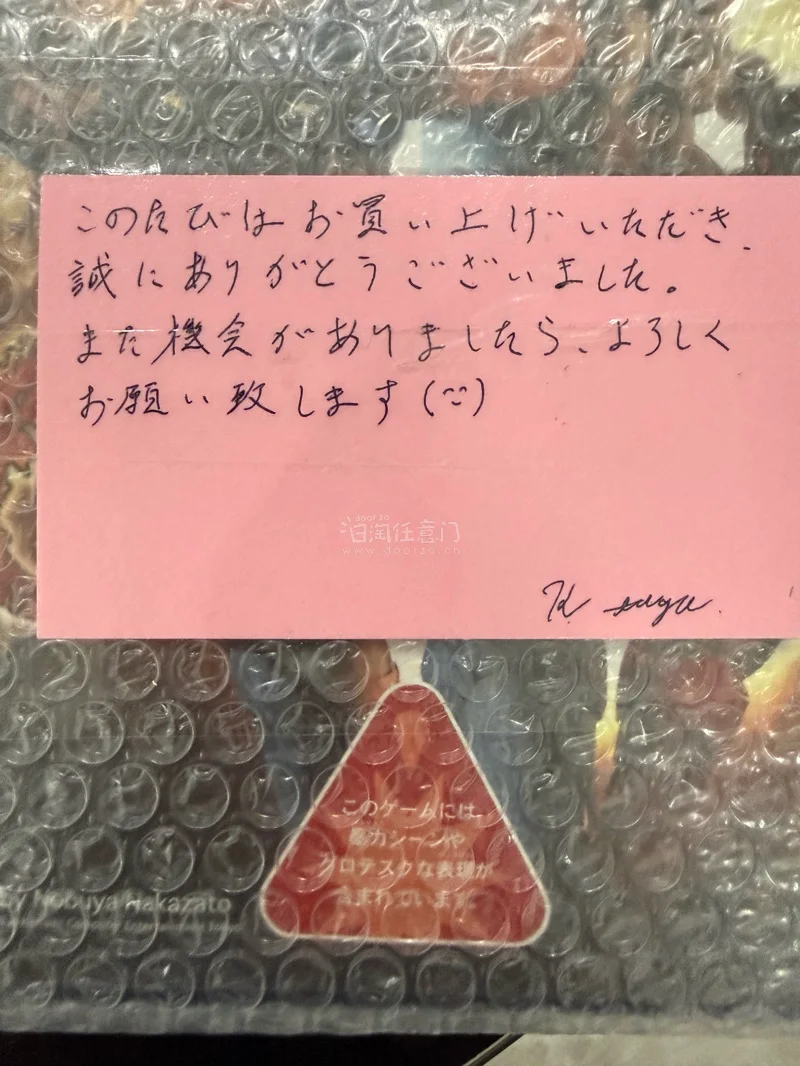 このたびはお買い上げいただき、
誠にありがとうございました。
また機会がありましたら、よろしく
お願い致します(¨)
doorzo
日淘任意门
www.doorzo.cn
K saga.
このゲームには
暴力シーンや
グロテスクな表現が
含まれています。
By Nobuya Nakazato